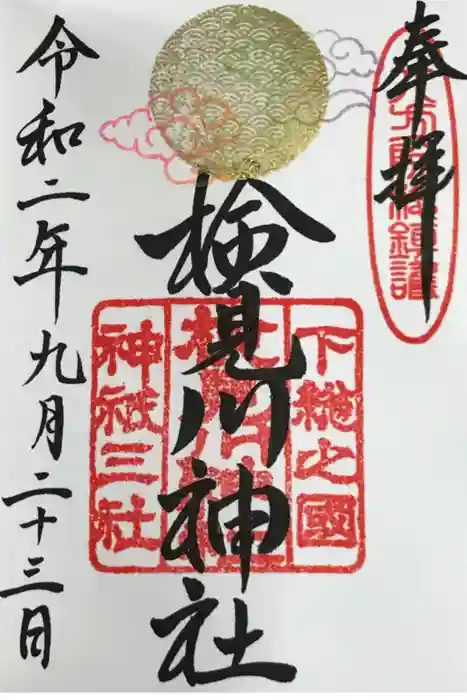 奉拝
下総之國
検見川神社
神祇三社
令和二年九月二十三日